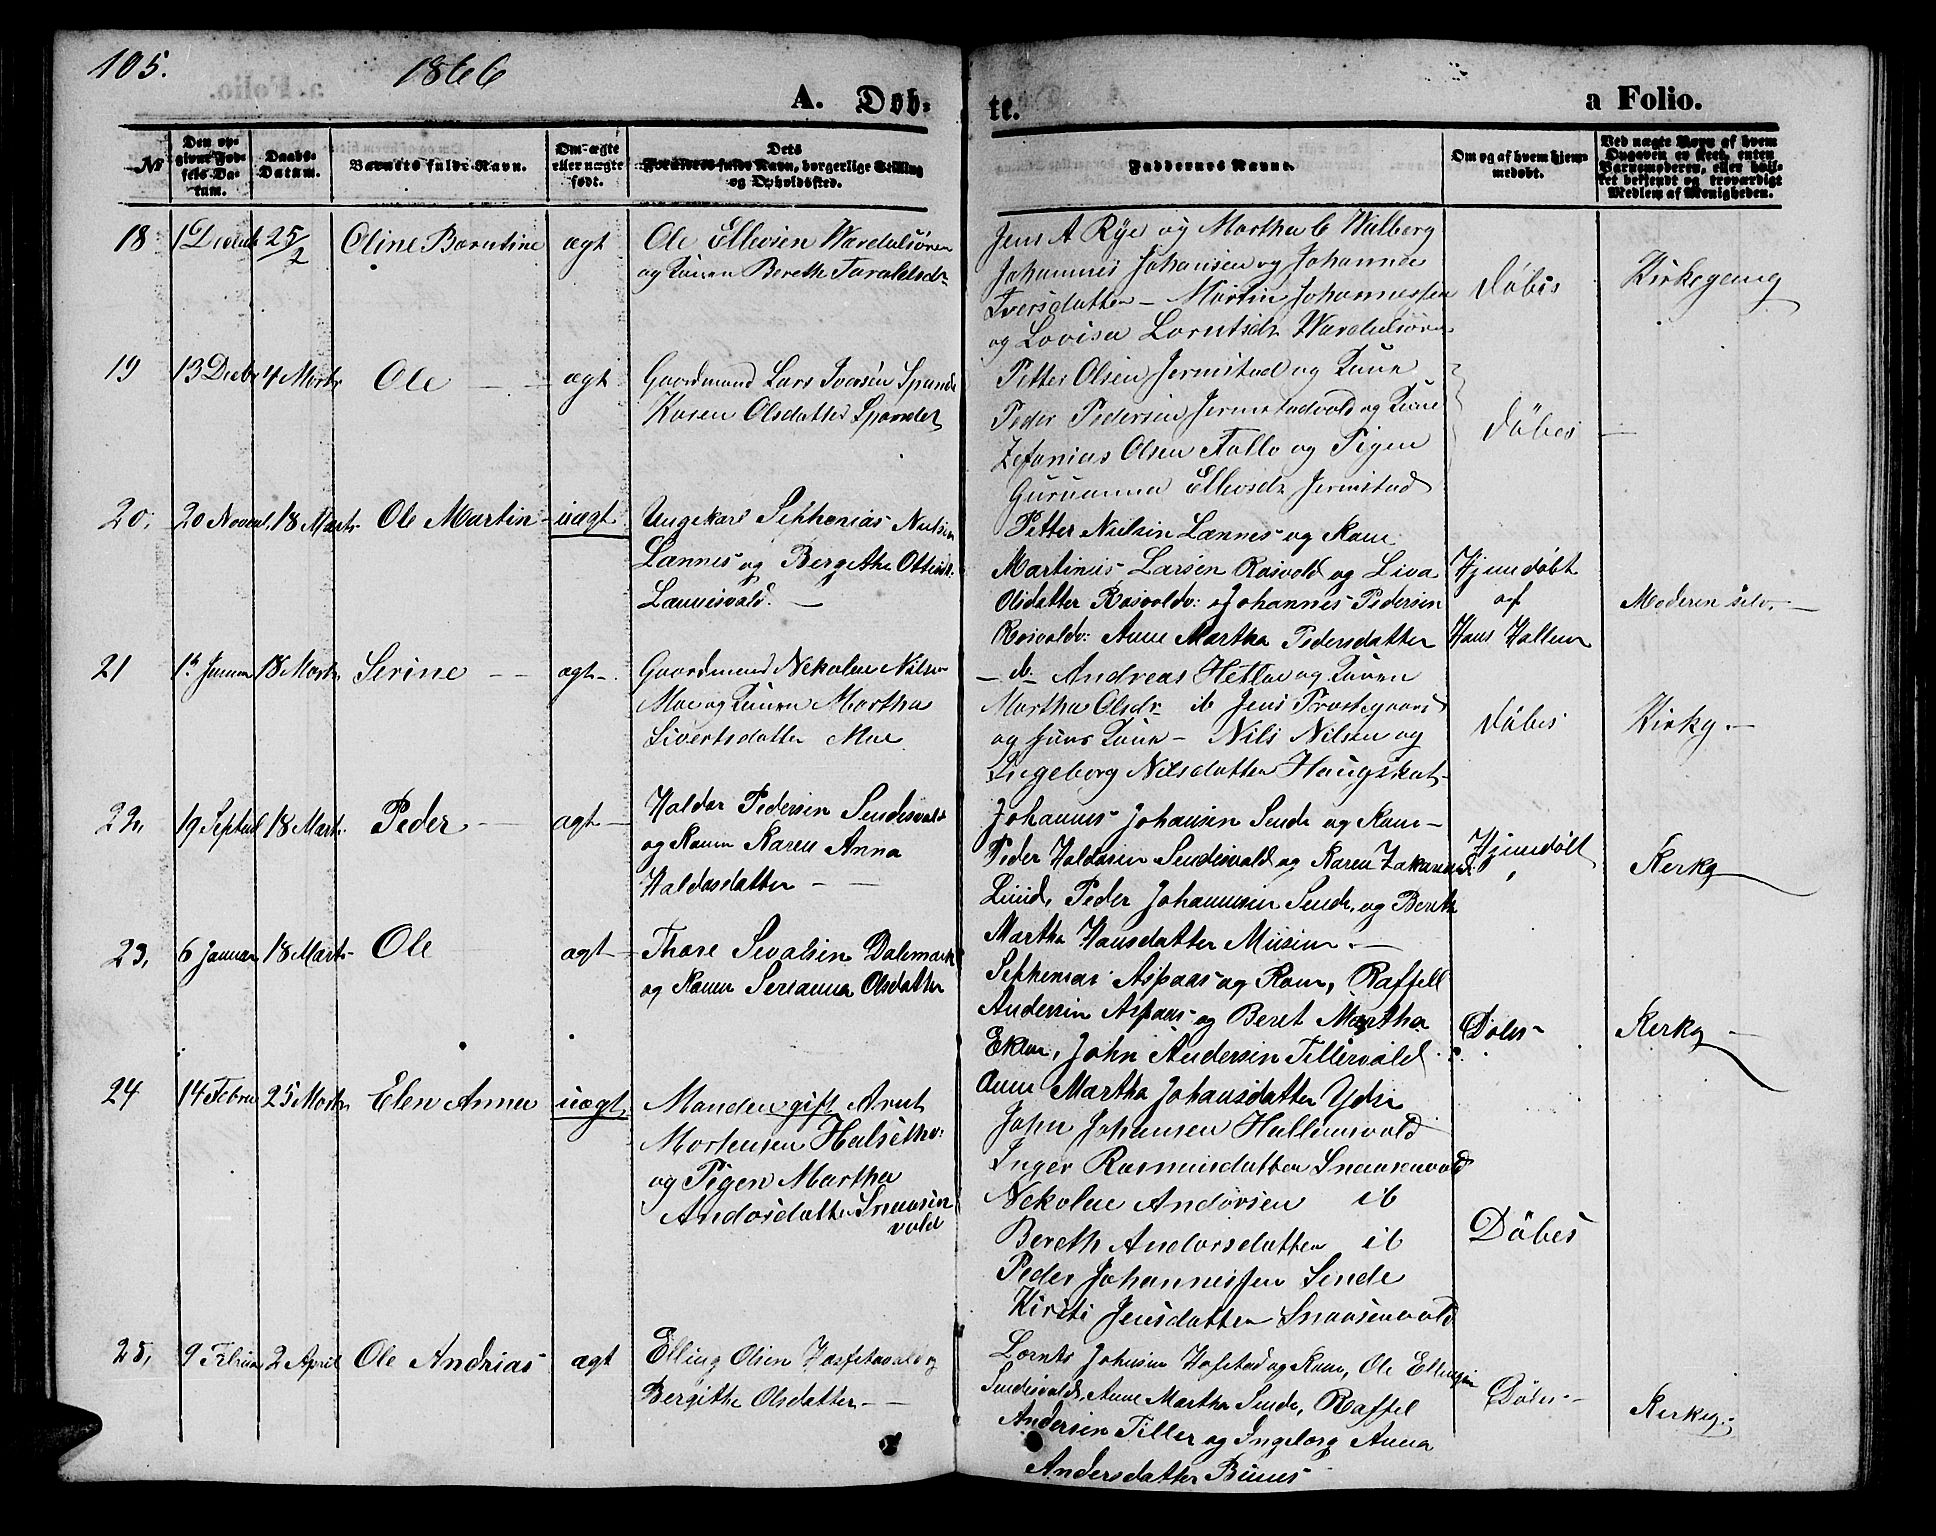 105.
1866
A. Døb-
te.
a Folio.
№
Den op-
givne Fød-
sels Da-
tum.
Daabs-
Datum.
Barnets fulde Navn.
Om ægte
eller uægte
født.
Dets
Forældres fulde Navn, borgerlige Stilling
og Opholdssted.
Faddernes Navne.
Om og af hvem hjem-
medøbt.
Ved uægte Børn af hvem
Opgaven er skeet, enten
Barnemoderen, eller hvil-
ket bekjendt og troværdigt
Medlem af Menigheden.
18
1 Decemb
25/2
Oline Borntine
ægt
Ole Ellevsen Wærdalsøren
og Konen Bereth Taraldsdr
Jens A Rye og Martha C Walberg
Johannes Johansen og Johanna
Iversdatter — Martin Johannessen
og Lovisa Lorntsdr Wærdalsøren
Døbes
Kirkegang
19
13 Decbr
4 Marts
Ole
ægt
Gaardmand Lars Ivarsen Spande
Karen Olsdatter Spandet
Petter Olsen Jermstad og Kone
Peder Pedersen Jermstadvald og Kone
Zefanias Olsen Tollo og Pigen
Guruanna Ellevsdr Jermstad
Døbes —
20.
20 Novemb.
18 Marts
Ole Martin
uægt
Ungekarl Sephenias Nielsen
Lannes og Bergithe Ottesdr.
Lannesvald. —
Petter Nielsen Lannes og Kone
Martinus Larsen Rosvold og Liva
Olsdatter Rosvoldv: og Johannes Pedersen
Rosvoldv: Anne Martha Pedersdatter
Hjemdøbt
af
Hans Hallem
Moderen selv. —
21
1. Januar
18 Marts
Serine —
ægt —
Gaardmand Nekolai Nilsen
Moe og Konen Martha
Sivertsdatter Moe
— ib — Andreas Hetloe og Konen
Martha Olsdr ib Jens Prostegaard
og Jens Kone — Nils Nilsen og
Ingeborg Nilsdatter Haugskot
Døbes
Kirkg —
22,
19 Septemb
18 Mart.
Peder —
ægt —
Haldor Pedersen Sendesvald
og Konen Karen Anna
Haldosdatter — —
Johannes Johansen Sende og Kone —
Peder Haldorsen Sendesvald og Karen Zakariasd.
Lund, Peder Johannesen Sende, og Bereth
Martha Hansdatter Musum —
Hjemdøbt
Kerkg
23,
6 Januar
18 Marts
Ole
ægt —
Thore Sevalsen Dalemark
og Konen Serianna Olsdatter
Sephenias Aspaas og Kone, Raffell
Andersen Aspaas og Beret Martha
Ekloe, John Andersen Tillervald
Anne Martha Johansdatter Ydse
Døbes
Kerkg —
24
14 Februar
25 Marts
Elen Anna
uægt
Manden gift Arnt
Mortensen Halsethv:
og Pigen Martha
Andorsdatter Snausen
vald
John Johansen Hallemsvald
Inger Rasmusdatter Snausenvald
Nekolai Andorsen ib
Bereth Andorsdatter ib
Peder Johannessen Sende
Kirsti Jensdatter Snausenvald
Døbes
25,
9 Februar
2 April
Ole Andrias
ægt
Elling Olsen Hofstavald og
Bergithe Olsdatter — —
Lornts Johnsen Hofstad og Kone, Ole Ellingsen
Sendesvald, Anne Martha Sende, Raffel
Andersen Tiller og Ingeborg Anna
Andersdatter Buues
Døbes —
Kerkg.